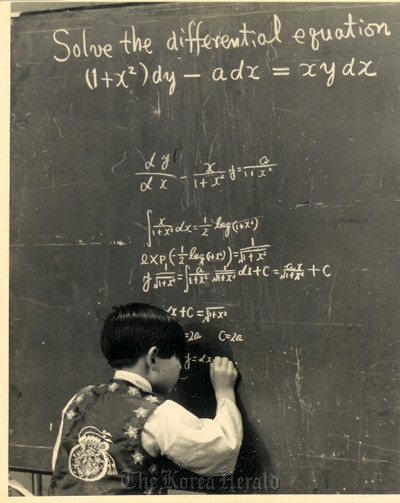 Solve the differential equation
(1+x²)dy − adx = xydx
dy/dx − x/(1+x²) y = a/(1+x²)
∫ x/(1+x²) dx = 1/2 log(1+x²)
exp(−1/2 log(1+x²)) = 1/√(1+x²)
y 1/√(1+x²) = ∫ a/(1+x²) 1/√(1+x²) dx + C = ax/√(1+x²) + C
x + C = √(1+x²)
=2a C=2a
y = ax
The Korea Herald